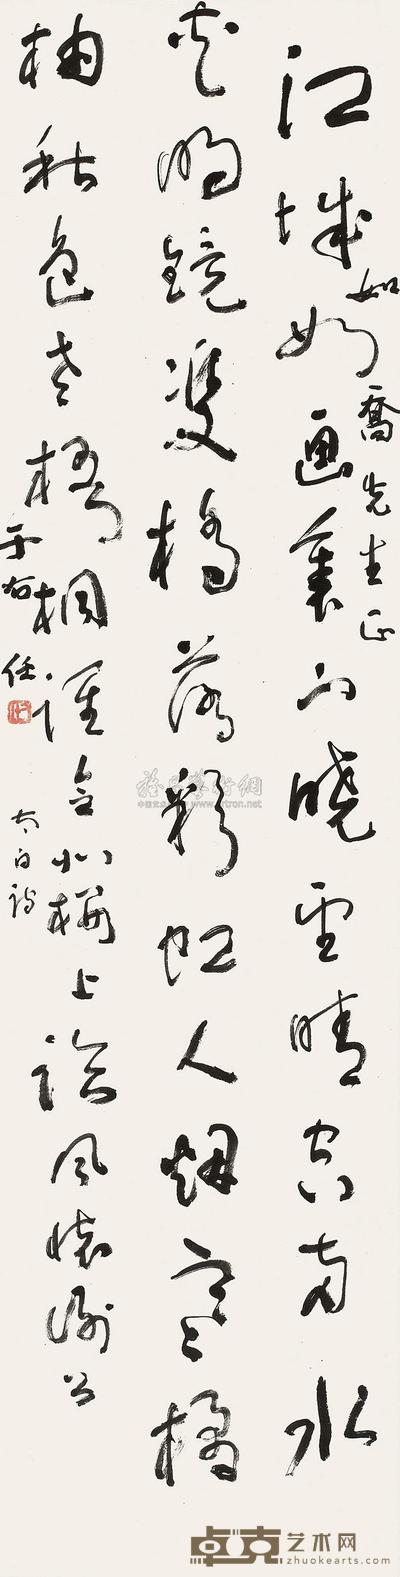 江城如畫裏山曉望晴空兩水
夾明鏡雙橋落彩虹人煙寒橘
柚秋色老梧桐誰念北樓上臨風懷謝公
如喬先生正
太白詩
于右任
雅昌藝術網
卓克艺术网
zhuokearts.com